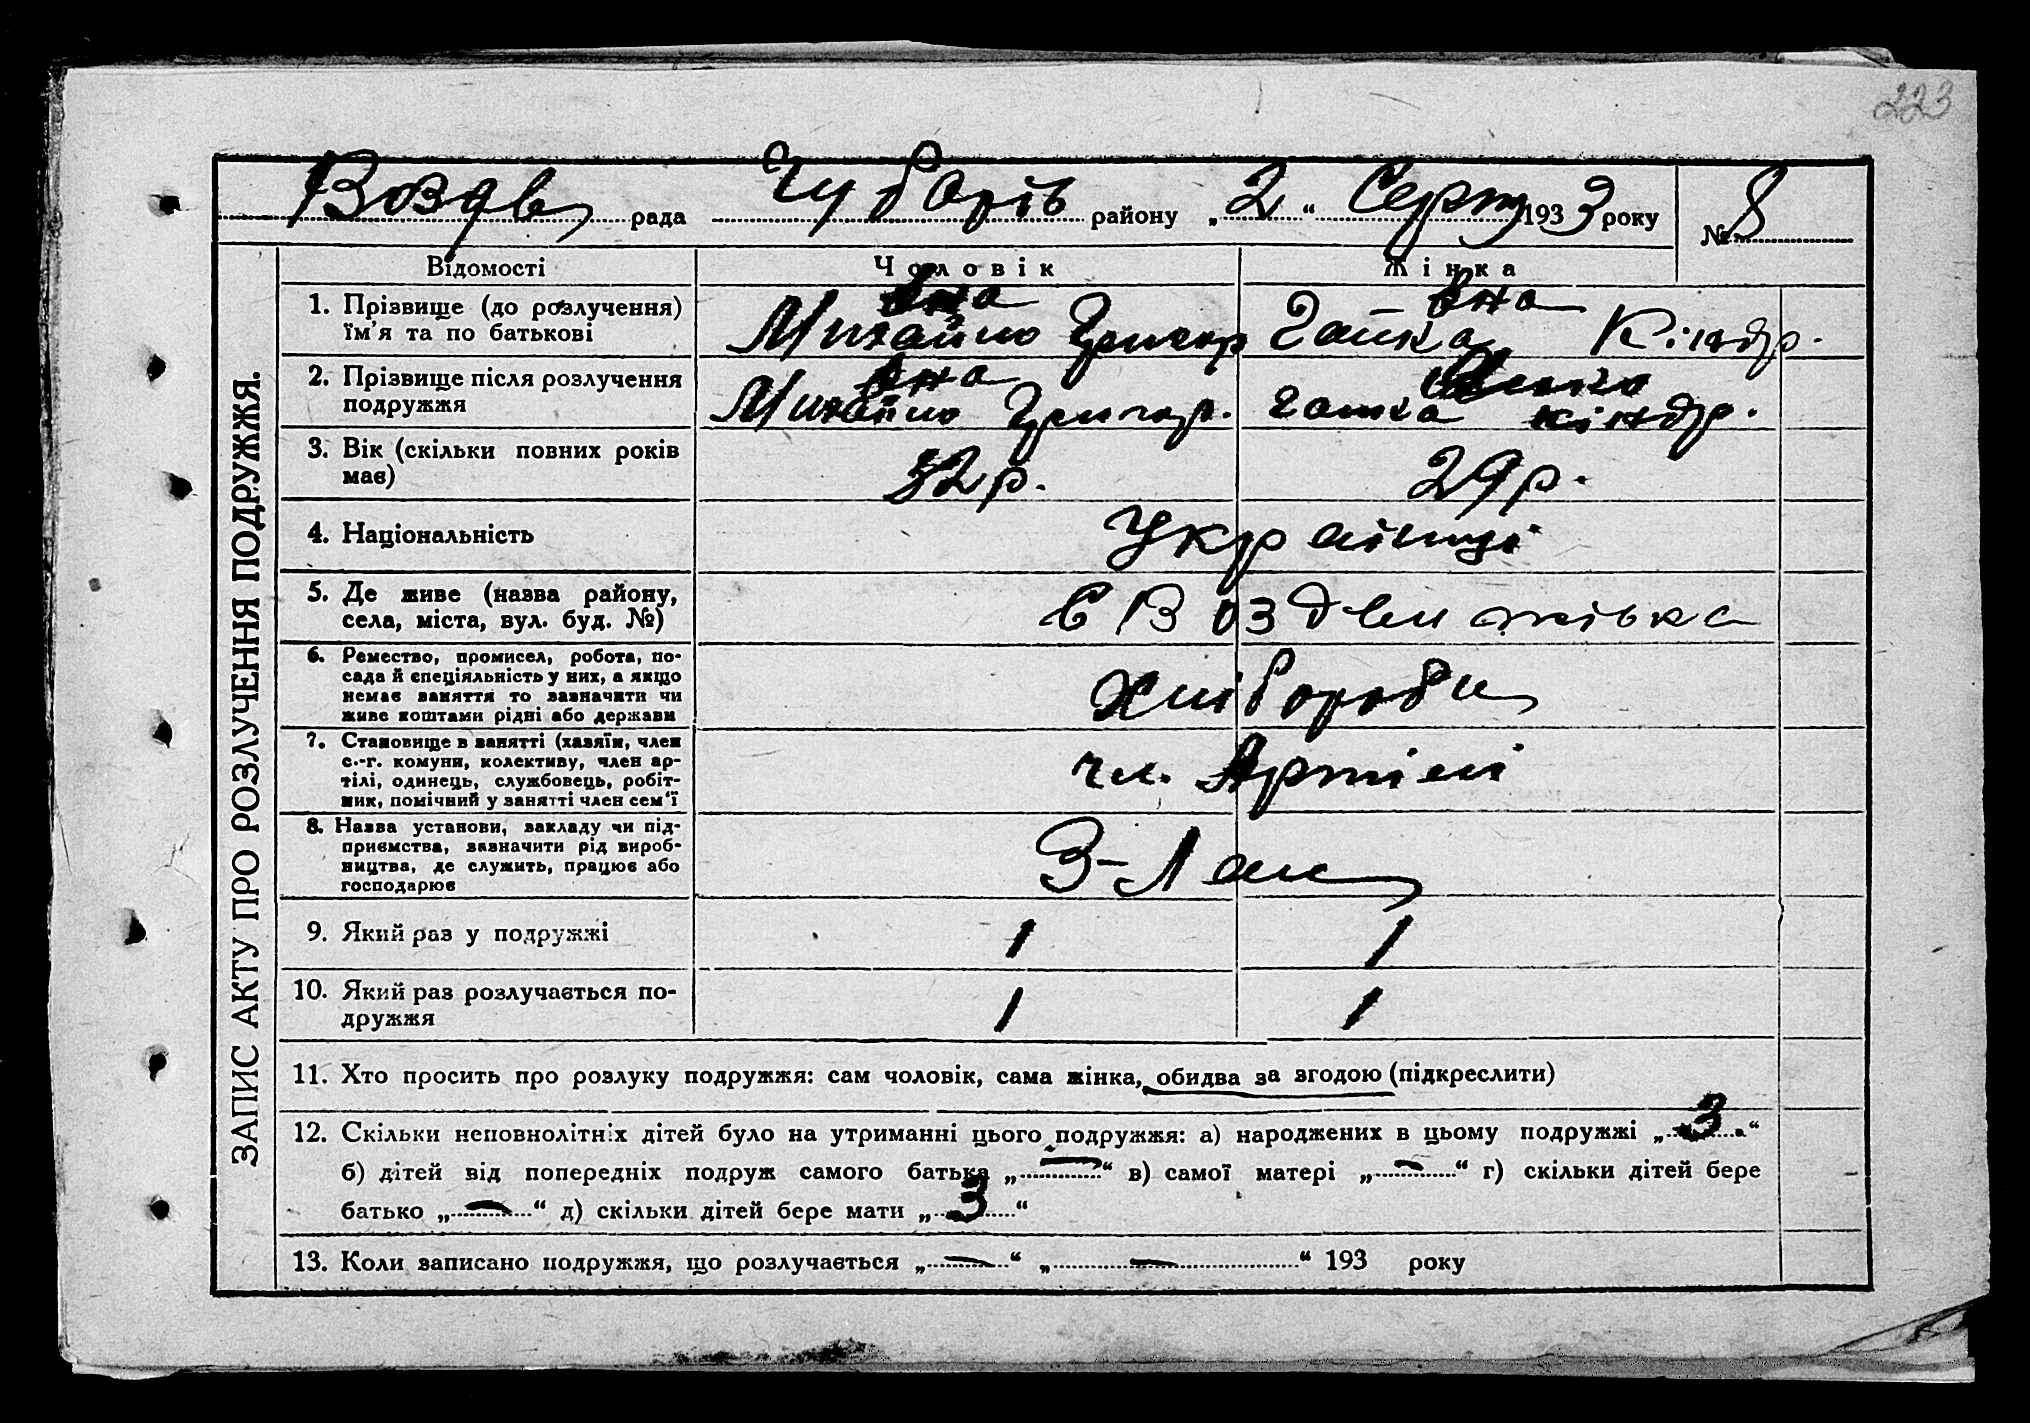 223
Воздв рада Чубарів району „2“ Серпн 1933 року № 8
Відомості Чоловік Жінка
1. Прізвище (до розлучення) їм'я та по батькові
Михайло Григор Гапка Кіндр.
2. Прізвище після розлучення подружжя
Михайло Григор. Гапка Кіндр.
3. Вік (скільки повних років має) 32 р. 29 р.
4. Національність Українці
5. Де живе (назва району, села, міста, вул. буд. №) с Воздвижівка
6. Ремество, промисел, робота, по-
сада й спеціяльність у них, а якщо
немає заняття то зазначити чи
живе коштами рідні або держави
Хлібороби
7. Становище в занятті (хазяїн, член
с.-г. комуни, колективу, член ар-
тілі, одинець, службовець, робіт-
ник, помічний у занятті член сем'ї
чл. Артілі
8. Назва установи, закладу чи під-
приємства, зазначити рід вироб-
ництва, де служить, працює або
господарює
З-Лан
9. Який раз у подружжі 1 1
10. Який раз розлучається по-
дружжя 1 1
11. Хто просить про розлуку подружжя: сам чоловік, сама жінка, обидва за згодою (підкреслити)
12. Скільки неповнолітніх дітей було на утриманні цього подружжя: а) народжених в цьому подружжі „3“
б) дітей від попередніх подруж самого батька „—“ в) самої матері „—“ г) скільки дітей бере
батько „—“ д) скільки дітей бере мати „3“
13. Коли записано подружжя, що розлучається „—“ „—“ 193 року
ЗАПИС АКТУ ПРО РОЗЛУЧЕННЯ ПОДРУЖЖЯ.